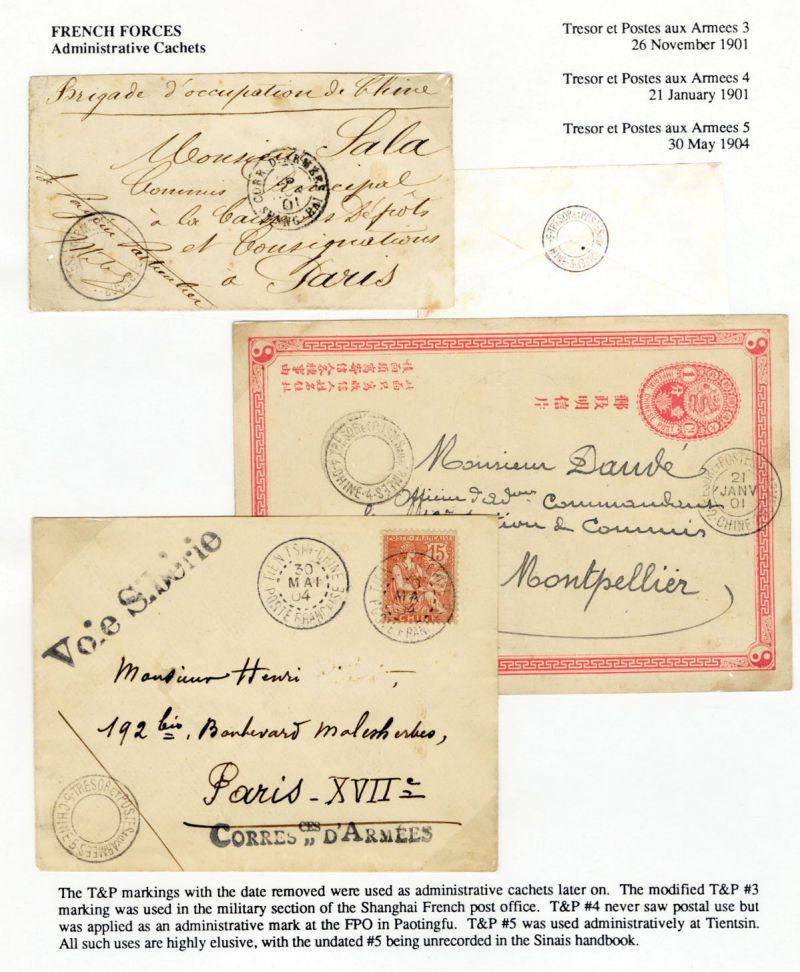 FRENCH FORCES
Administrative Cachets
Tresor et Postes aux Armees 3
26 November 1901
Tresor et Postes aux Armees 4
21 January 1901
Tresor et Postes aux Armees 5
30 May 1904
Brigade d'occupation de Chine
Monsieur Sala
Commis Principal
à la Caisse des Dépôts
et Consignations
à Paris
CORR. D'ARMÉES
01
SHANG-HAI
TRESOR ET POSTES AUX
CHINE
郵政明信片
Monsieur Daudé
Officier d'adm
Commandant
Section de Commis
Montpellier
TRESOR ET POSTES AUX
CHINE-4-
21
JANV
01
CHINE
Voie Sibérie
TIEN-TSIN-CHINE
30
MAI
04
POSTE FRANÇAISE
POSTE FRANÇAISE
15
CHINE
Monsieur Henri
192 bis, Boulevard Malesherbes,
Paris-XVIIe
CORRES CES D'ARMÉES
TRESOR ET POSTES AUX ARMEES
CHINE
The T&P markings with the date removed were used as administrative cachets later on. The modified T&P #3
marking was used in the military section of the Shanghai French post office. T&P #4 never saw postal use but
was applied as an administrative mark at the FPO in Paotingfu. T&P #5 was used administratively at Tientsin.
All such uses are highly elusive, with the undated #5 being unrecorded in the Sinais handbook.